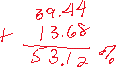 39.44
+ 13.68
53.12 %